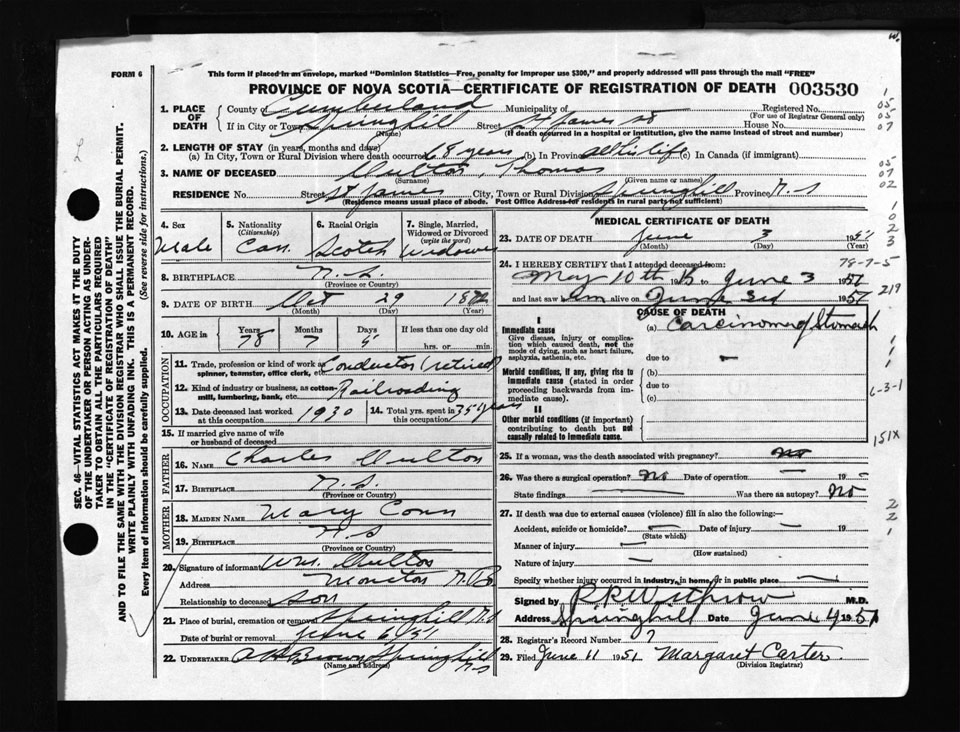 FORM 6
This form if placed in an envelope, marked "Dominion Statistics—Free, penalty for improper use $300," and properly addressed will pass through the mail "FREE"
PROVINCE OF NOVA SCOTIA—CERTIFICATE OF REGISTRATION OF DEATH 003530
1. PLACE OF DEATH County of Cumberland Municipality of Registered No.
(For use of Registrar General only)
If in City or Town Springhill Street St James St House No.
(Name) (If death occurred in a hospital or institution, give the name instead of street and number)
2. LENGTH OF STAY (in years, months and days)
(a) In City, Town or Rural Division where death occurred 68 years (b) In Province all his life (c) In Canada (if immigrant)
3. NAME OF DECEASED Thomas
(Surname) (Given name or names)
RESIDENCE No. Street St James City, Town or Rural Division Springhill Province N.S
(Residence means usual place of abode. Post Office Address for residents in rural parts not sufficient)
4. Sex Male
5. Nationality (Citizenship) Can.
6. Racial Origin Scotch
7. Single, Married, Widowed or Divorced (write the word) Widower
8. BIRTHPLACE N.S.
(Province or Country)
9. DATE OF BIRTH Oct 29 1872
(Month) (Day) (Year)
10. AGE in Years Months Days If less than one day old
78 7 5 hrs. or min.
OCCUPATION
11. Trade, profession or kind of work as spinner, teamster, office clerk, etc. Conductor (retired)
12. Kind of industry or business, as cotton-mill, lumbering, bank, etc. Railroading
13. Date deceased last worked at this occupation 1930
14. Total yrs. spent in this occupation 35 years
15. If married give name of wife or husband of deceased
FATHER
16. NAME Charles
17. BIRTHPLACE N.S.
(Province or Country)
MOTHER
18. MAIDEN NAME Mary Conn
19. BIRTHPLACE N.S
(Province or Country)
20. Signature of informant Wm.
Address Moncton N.B.
Relationship to deceased Son
21. Place of burial, cremation or removal Springhill N.S
Date of burial or removal June 6/51
22. UNDERTAKER Brown Springhill N-S
(Name and address)
MEDICAL CERTIFICATE OF DEATH
23. DATE OF DEATH June 3 1951
(Month) (Day) (Year)
24. I HEREBY CERTIFY that I attended deceased from: 78-7-5
May 10th to June 3 1951
and last saw him alive on June 3rd 1951 219
CAUSE OF DEATH
I
Immediate cause (a) Carcinoma of Stomach
Give disease, injury or complication which caused death, not the mode of dying, such as heart failure, asphyxia, asthenia, etc.
due to —
Morbid conditions, if any, giving rise to immediate cause (stated in order proceeding backwards from immediate cause). (b)
due to
(c)
II
Other morbid conditions (if important) contributing to death but not causally related to immediate cause.
151X
25. If a woman, was the death associated with pregnancy?
26. Was there a surgical operation? No Date of operation — 195
State findings Was there an autopsy? No
27. If death was due to external causes (violence) fill in also the following:—
Accident, suicide or homicide? — Date of injury — 19
(State which)
Manner of injury —
(How sustained)
Nature of injury —
Specify whether injury occurred in industry, in home, or in public place —
Signed by R.R. Withrow M.D.
Address Springhill Date June 4 1951
28. Registrar's Record Number 7
29. Filed June 11 1951 Margaret Carter
(Division Registrar)
SEC. 46—VITAL STATISTICS ACT MAKES IT THE DUTY
OF THE UNDERTAKER OR PERSON ACTING AS UNDERTAKER TO OBTAIN ALL THE PARTICULARS REQUIRED
IN THE "CERTIFICATE OF REGISTRATION OF DEATH"
AND TO FILE THE SAME WITH THE DIVISION REGISTRAR WHO SHALL ISSUE THE BURIAL PERMIT.
WRITE PLAINLY WITH UNFADING INK. THIS IS A PERMANENT RECORD.
Every item of Information should be carefully supplied. (See reverse side for instructions.)